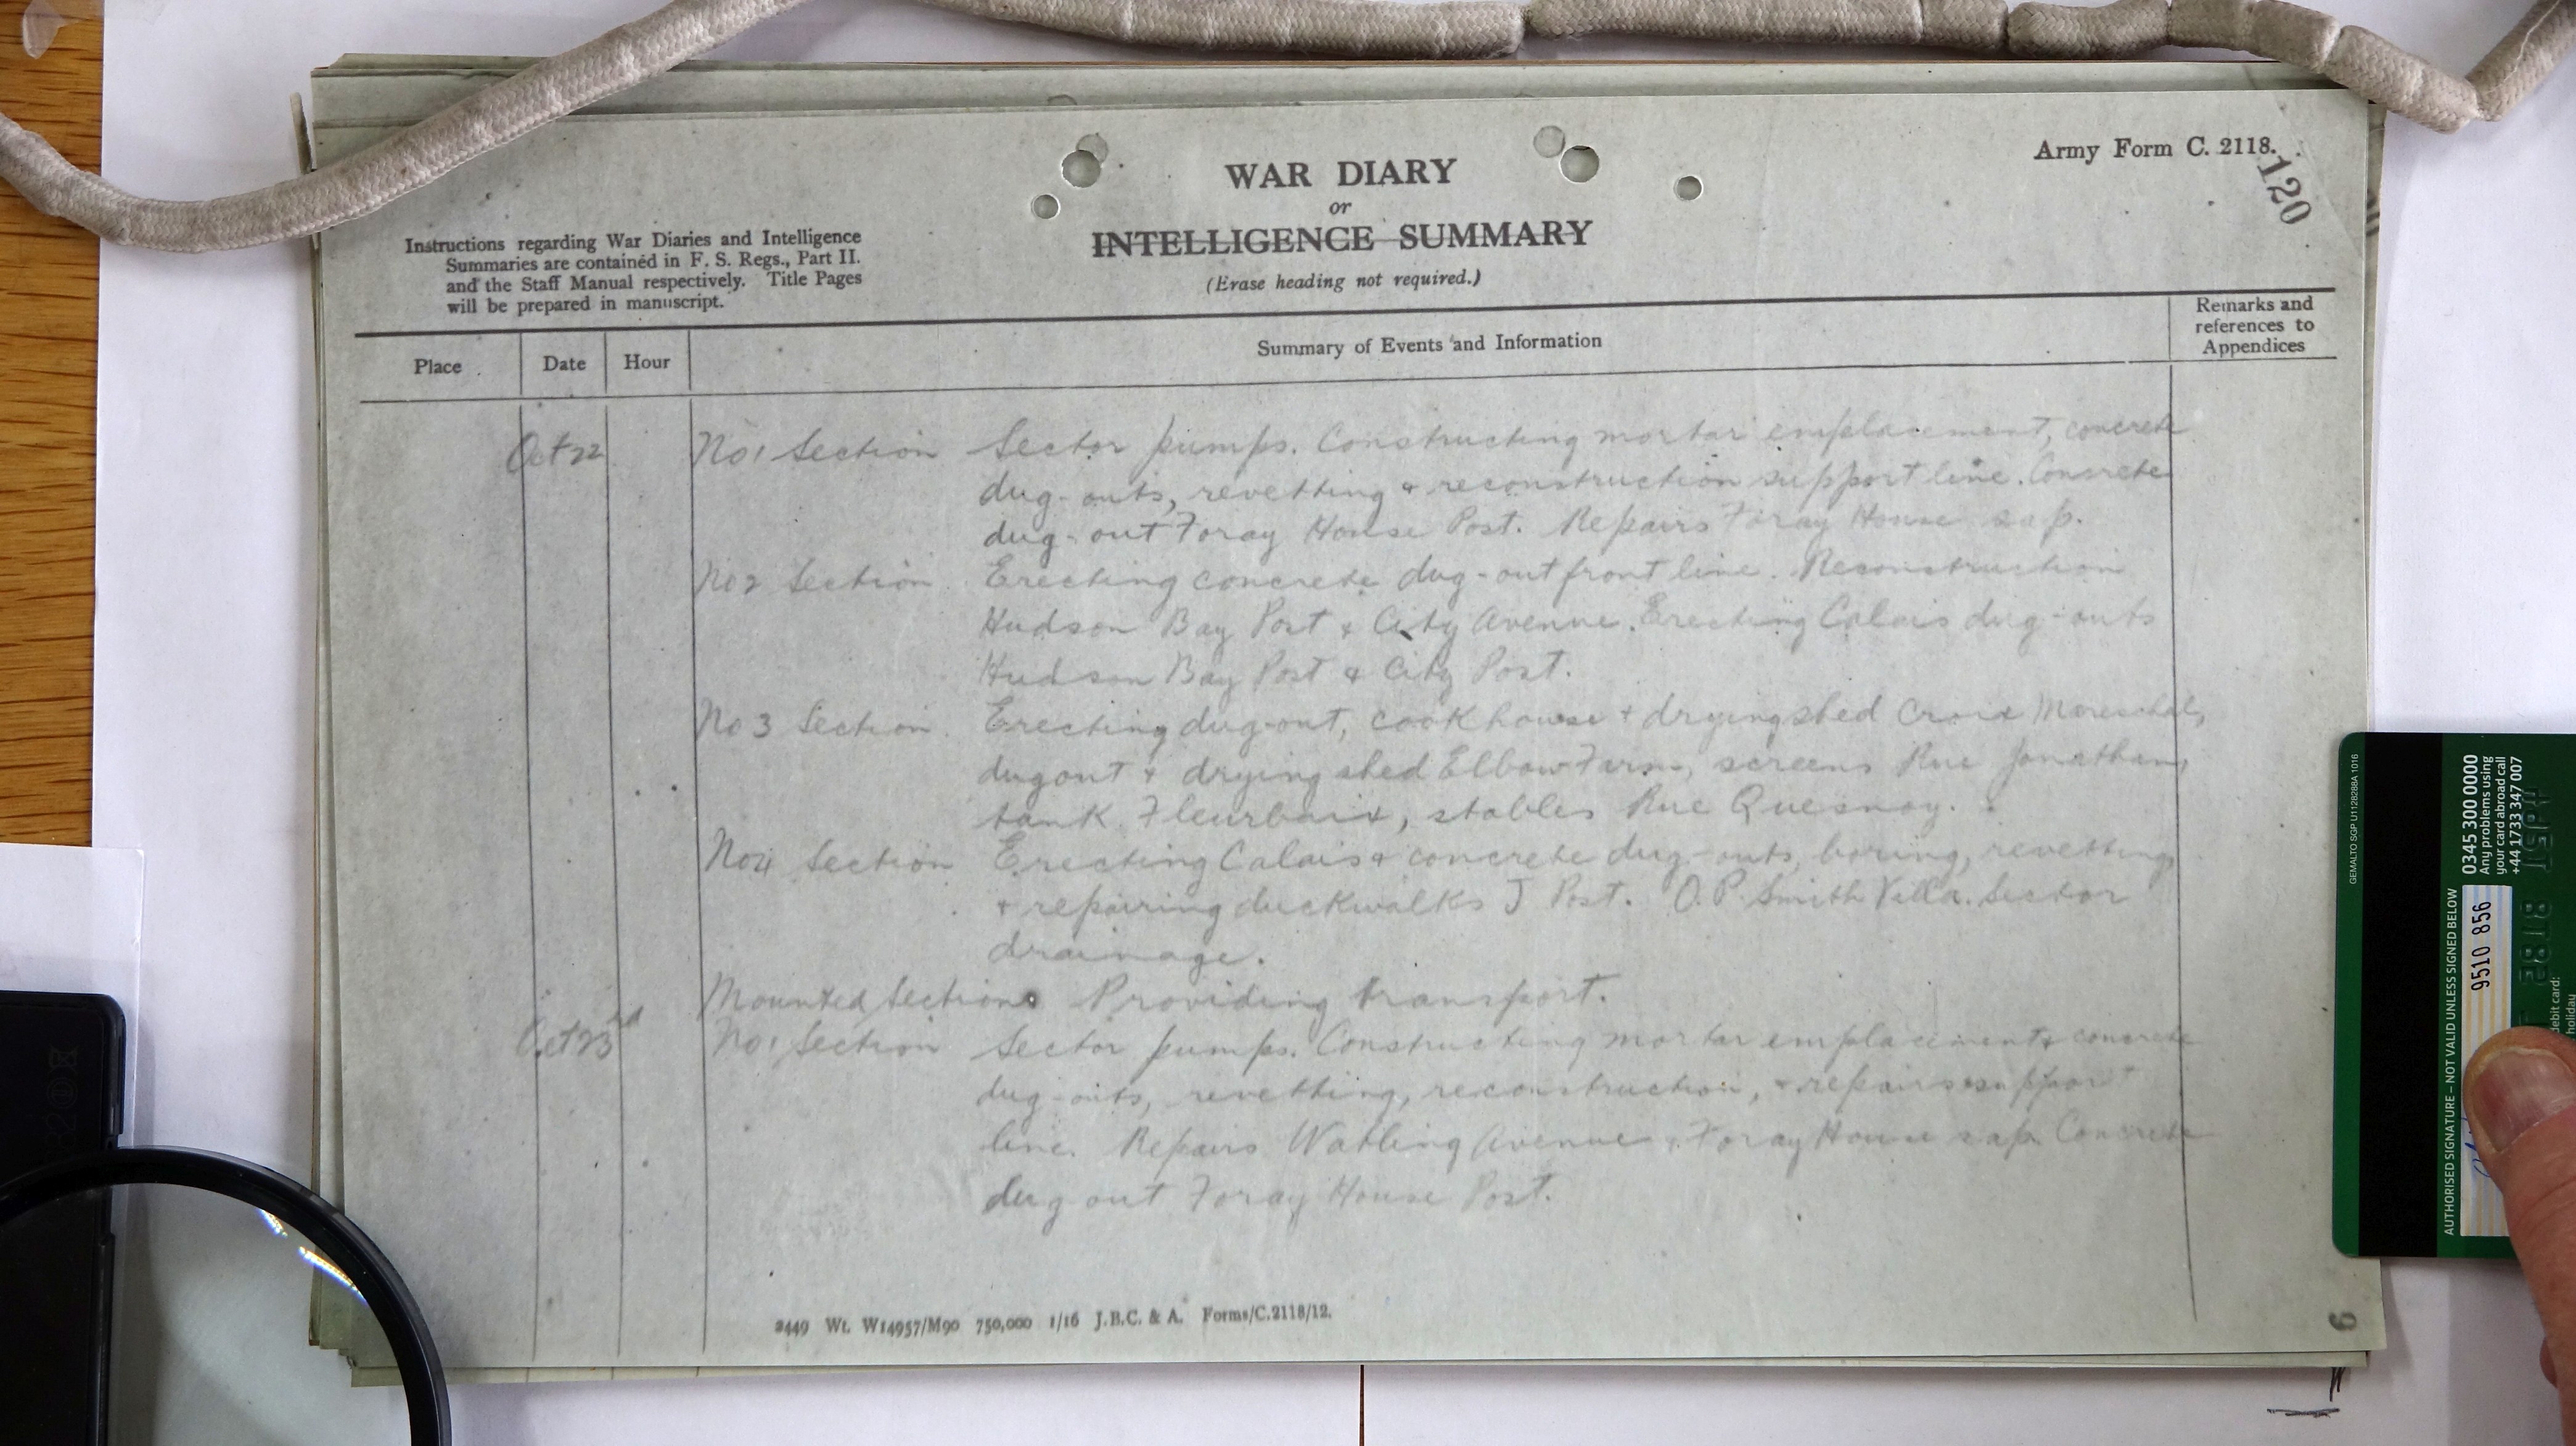 Army Form C. 2118.
120
WAR DIARY
or
INTELLIGENCE SUMMARY
(Erase heading not required.)
Instructions regarding War Diaries and Intelligence
Summaries are contained in F. S. Regs., Part II.
and the Staff Manual respectively. Title Pages
will be prepared in manuscript.
Place Date Hour Summary of Events and Information Remarks and
references to
Appendices
Oct 22 No 1 Section Sector pumps. Constructing mortar emplacement, concrete
dug-outs, revetting & reconstruction support line. Concrete
dug-out Foray House Post. Repairs Foray House sap.
No 2 Section Erecting concrete dug-out front line. Reconstruction
Hudson Bay Post & City Avenue. Erecting Calais dug-outs
Hudson Bay Post & City Post.
No 3 Section Erecting dug-out, cookhouse & drying shed Croix Mareschal,
dugout & drying shed Elbow Farm, screens Rue Jonathan,
tank Fleurbaix, stables Rue Quesnoy.
No 4 Section Erecting Calais & concrete dug-outs, boring, revetting
& repairing duckwalks J Post. O.P. Smith Villa. Sector
drainage.
Mounted Section Providing transport.
Oct 23rd No 1 Section Sector pumps. Constructing mortar emplacement & concrete
dug-outs, revetting, reconstruction, & repairs support
line. Repairs Watling Avenue & Foray House sap. Concrete
dug out Foray House Post.
2449 Wt. W14957/M90 750,000 1/16 J.B.C. & A. Forms/C.2118/12.
6
GEMALTO SGP U1128288A 1016
AUTHORISED SIGNATURE – NOT VALID UNLESS SIGNED BELOW
9510 856
0345 300 0000
Any problems using
your card abroad call
+44 1733 347 007
debit card:
holiday